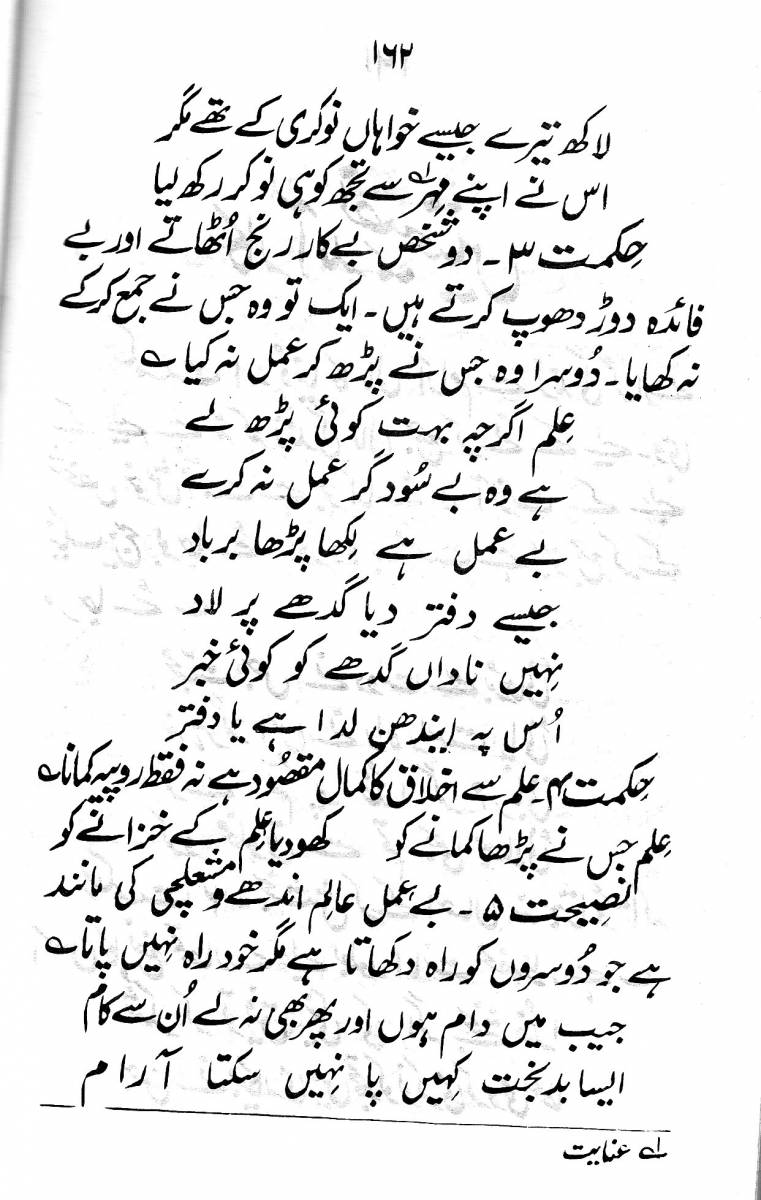 ۱۶۲
لاکھ تیرے جیسے خواہاں نوکری کے تھے مگر
اس نے اپنے مِہر لہ سے تجھ کو ہی نوکر رکھ لیا
حِکمت ۳۔ دو شخص بے کار رنج اُٹھاتے اور بے
فائدہ دوڑ دھوپ کرتے ہیں۔ ایک تو وہ جس نے جمع کر کے
نہ کھایا۔ دُوسرا وہ جس نے پڑھ کر عمل نہ کیا ؎
عِلم اگرچہ بہت کوئی پڑھ لے
ہے وہ بے سُود گر عمل نہ کرے
بے عمل ہے لِکھا پڑھا برباد
جیسے دفتر دیا گدھے پر لاد
نہیں ناداں گدھے کو کوئی خبر
اُس پہ ایندھن لدا ہے یا دفتر
حِکمت ۴۔ عِلم سے اخلاق کا کمال مقصُود ہے نہ فقط روپیہ کمانا ؎
عِلم جس نے پڑھا کمانے کو کھو دیا عِلم کے خزانے کو
نصِیحت ۵۔ بے عمل عالِم اندھے و مشعلچی کی مانند
ہے جو دُوسروں کو راہ دکھاتا ہے مگر خود راہ نہیں پاتا ؎
جیب میں دام ہوں اور پھر بھی نہ لے اُن سے کام
ایسا بدبخت کہیں پا نہیں سکتا آرام
لہ عنایت